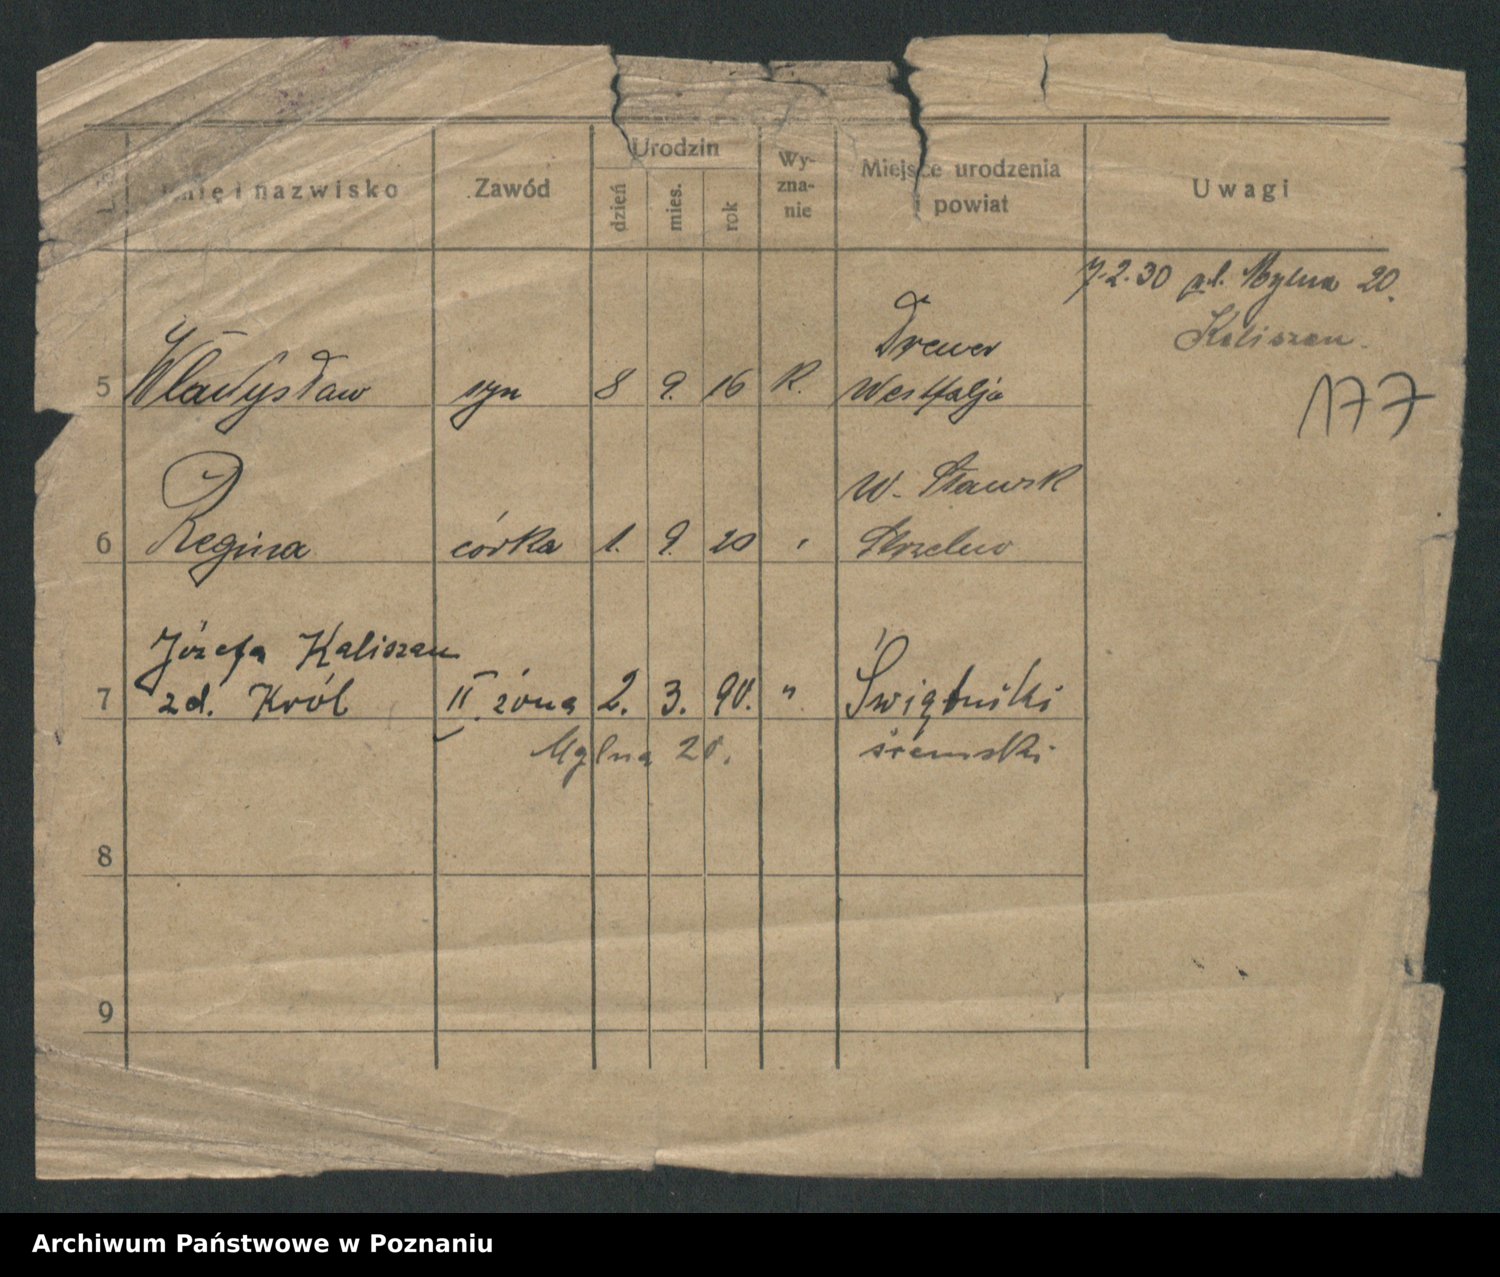 Imię i nazwisko
Zawód
Urodzin
dzień
mies.
rok
Wy-
zna-
nie
Miejsce urodzenia
i powiat
Uwagi
7.2.30 ul. Mylna 20.
Kaliszan.
177
Drewer
5 Władysław syn 8 9. 16 R. Westfalja
W. Sławsk
6 Regina córka 1. 9. 20 " Strzelno
Józefa Kaliszan
7 zd. Król II. żona 2. 3. 90. " Świątniki
Mylna 20. śremski
8
9
Archiwum Państwowe w Poznaniu